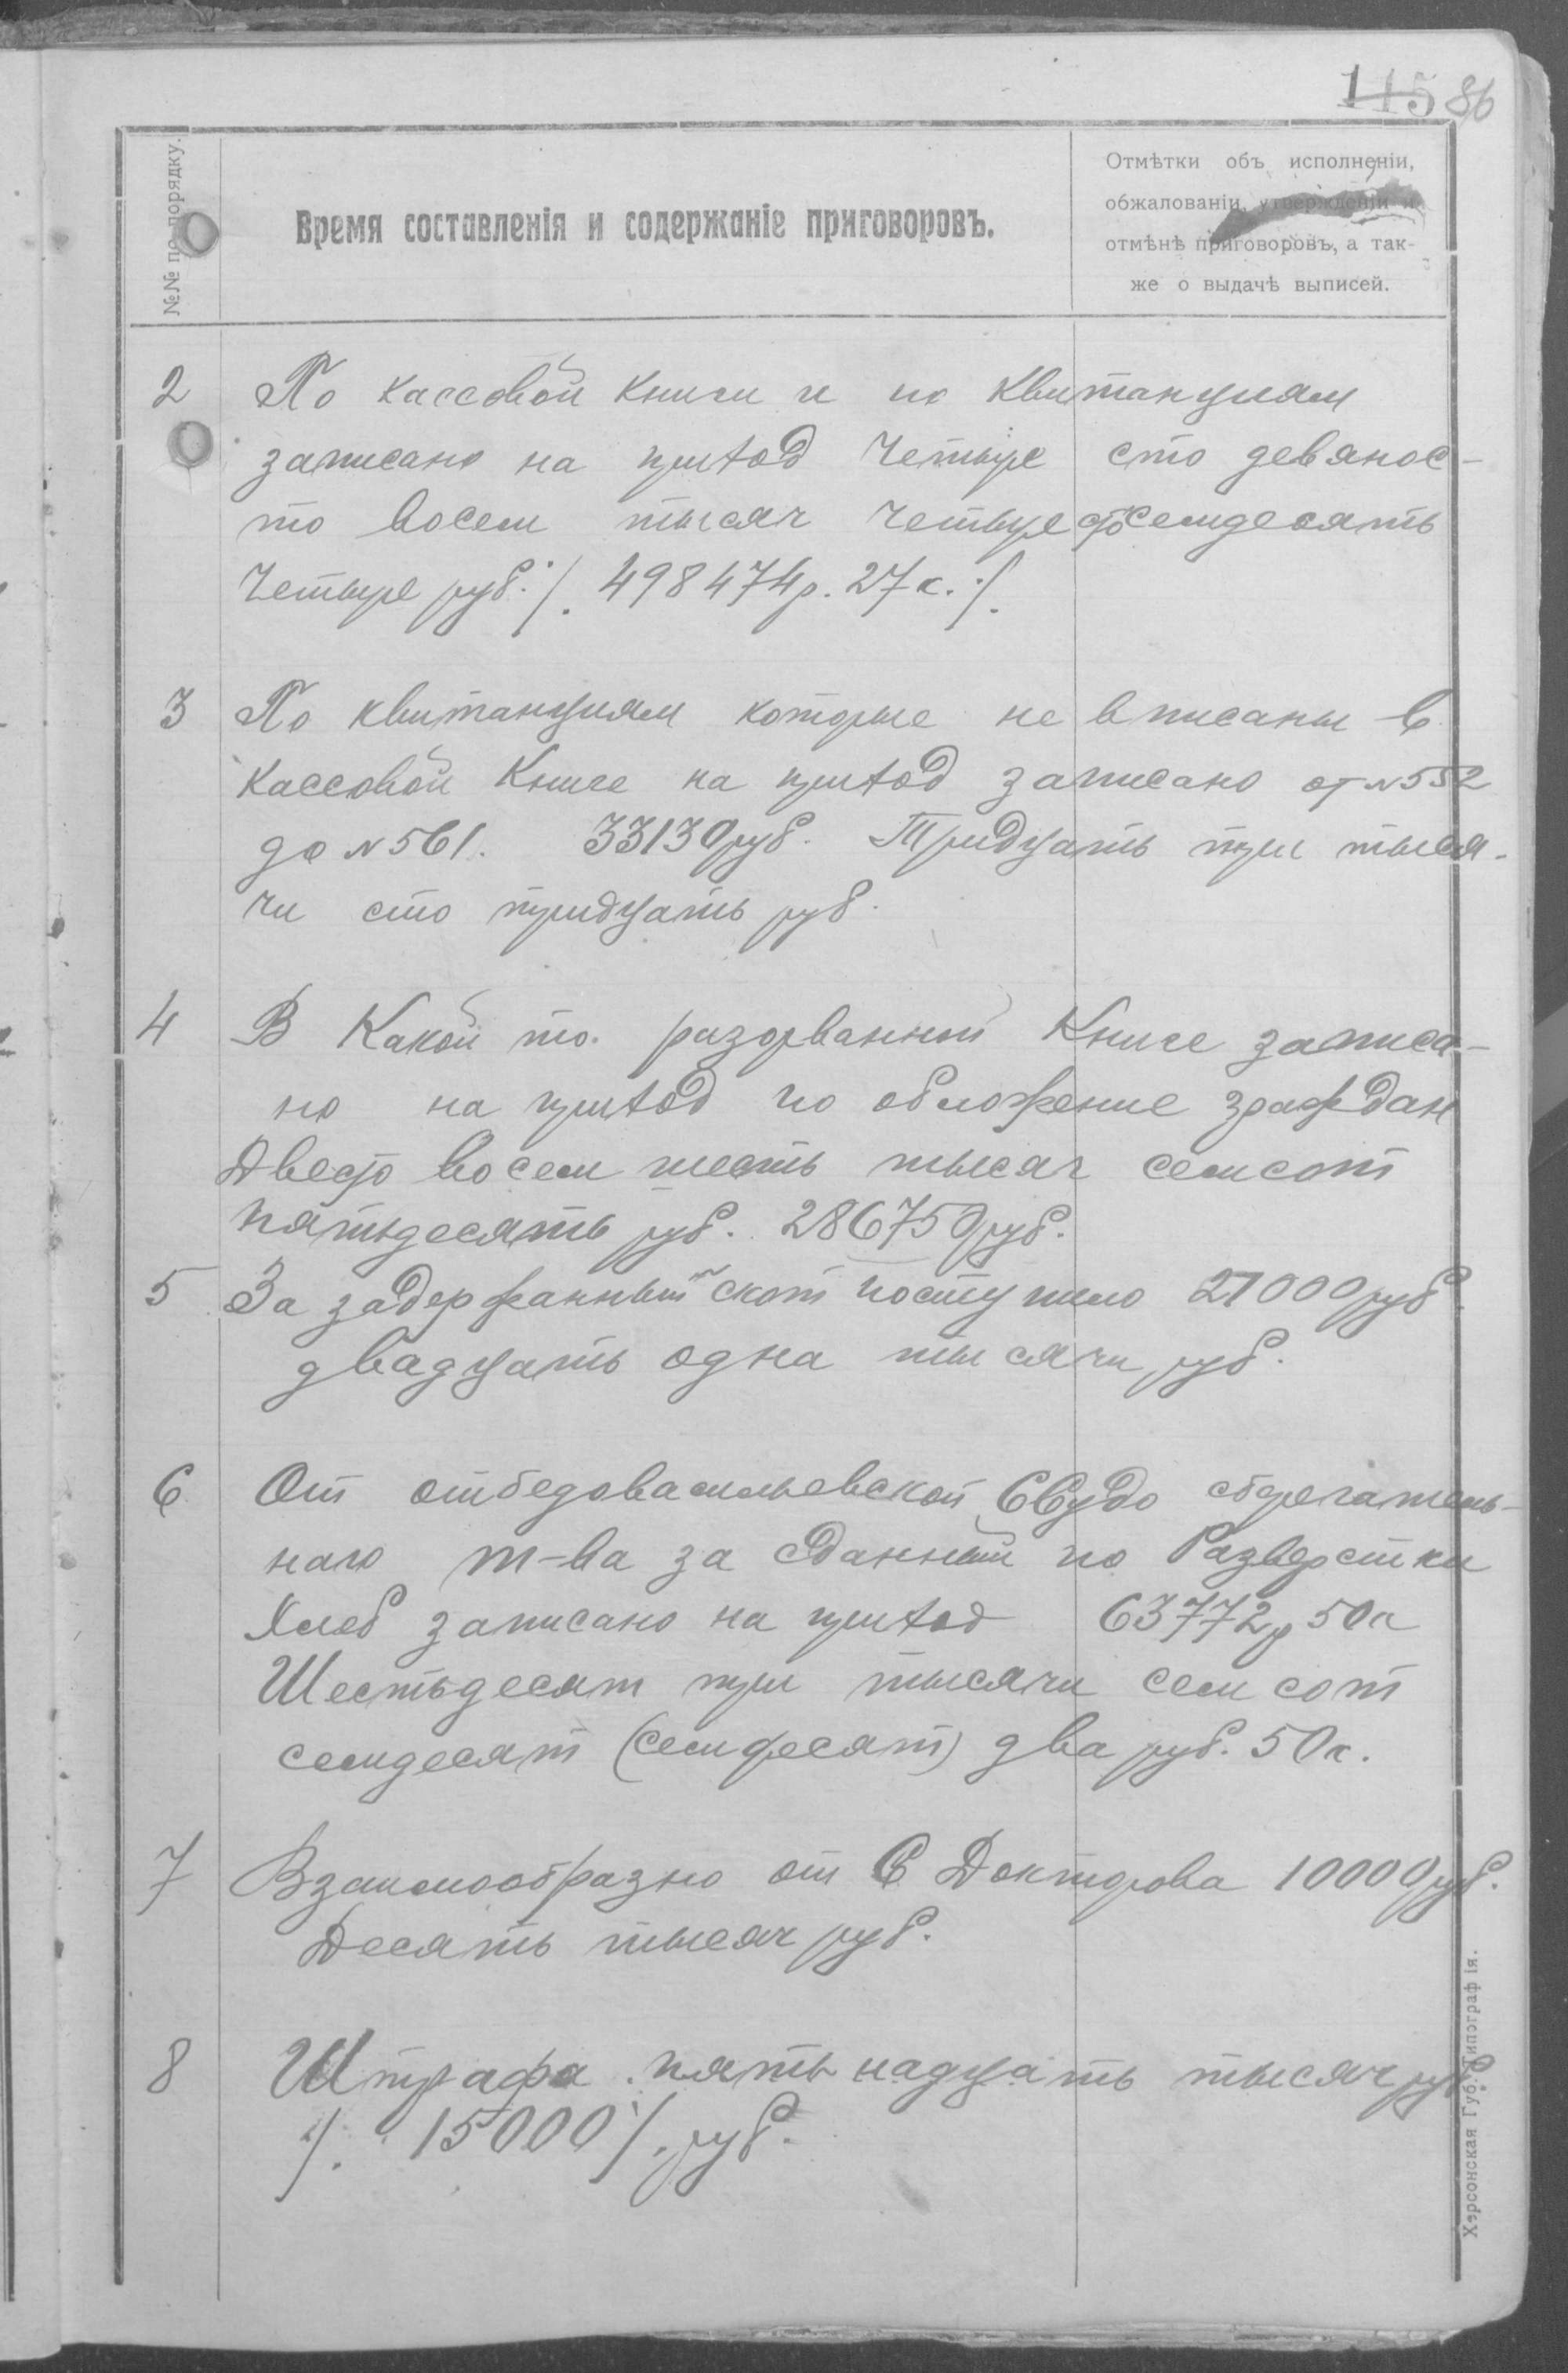 115 86
№№ по порядку.
Время составленія и содержаніе приговоровъ.
Отмѣтки объ исполненіи,
обжалованіи, утвержденіи и
отмѣнѣ приговоровъ, а так-
же о выдачѣ выписей.
2 По кассовой книги и по квитанциям
записано на приход Четыре сто девянос-
то восем тысяч четыре сто семдесять
Четыре руб. /. 498474р. 27к. /.
3 По квитанциям которые не вписаны в
кассовой Книге на приход записано от №552
до №561. 33130руб. Тридцать три тыся-
чи сто тридцать руб.
4 В Какой то разорванной Книге записа-
но на приход по обложение граждан
Двесто восем шесть тысяч семсот
пятьдесять руб. 286750руб.
5 За задержанный скот поступило 21000руб.
двадцать одна тысячи руб.
6 От Ссудо сберегатель-
наго т-ва за сданный по Разверстки
Хлеб записано на приход 63772р 50к
Шестьдесят три тысячи семсот
семдесят (семдесят) два руб. 50к.
7 Взаимообразно от С Докторова 10000руб.
Десять тысяч руб.
8 Штрафа пятьнадцать тысяч руб
/. 15000 /. руб.
Херсонская Губ. Типографія.